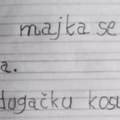 majka se
a.
dugačku kosu